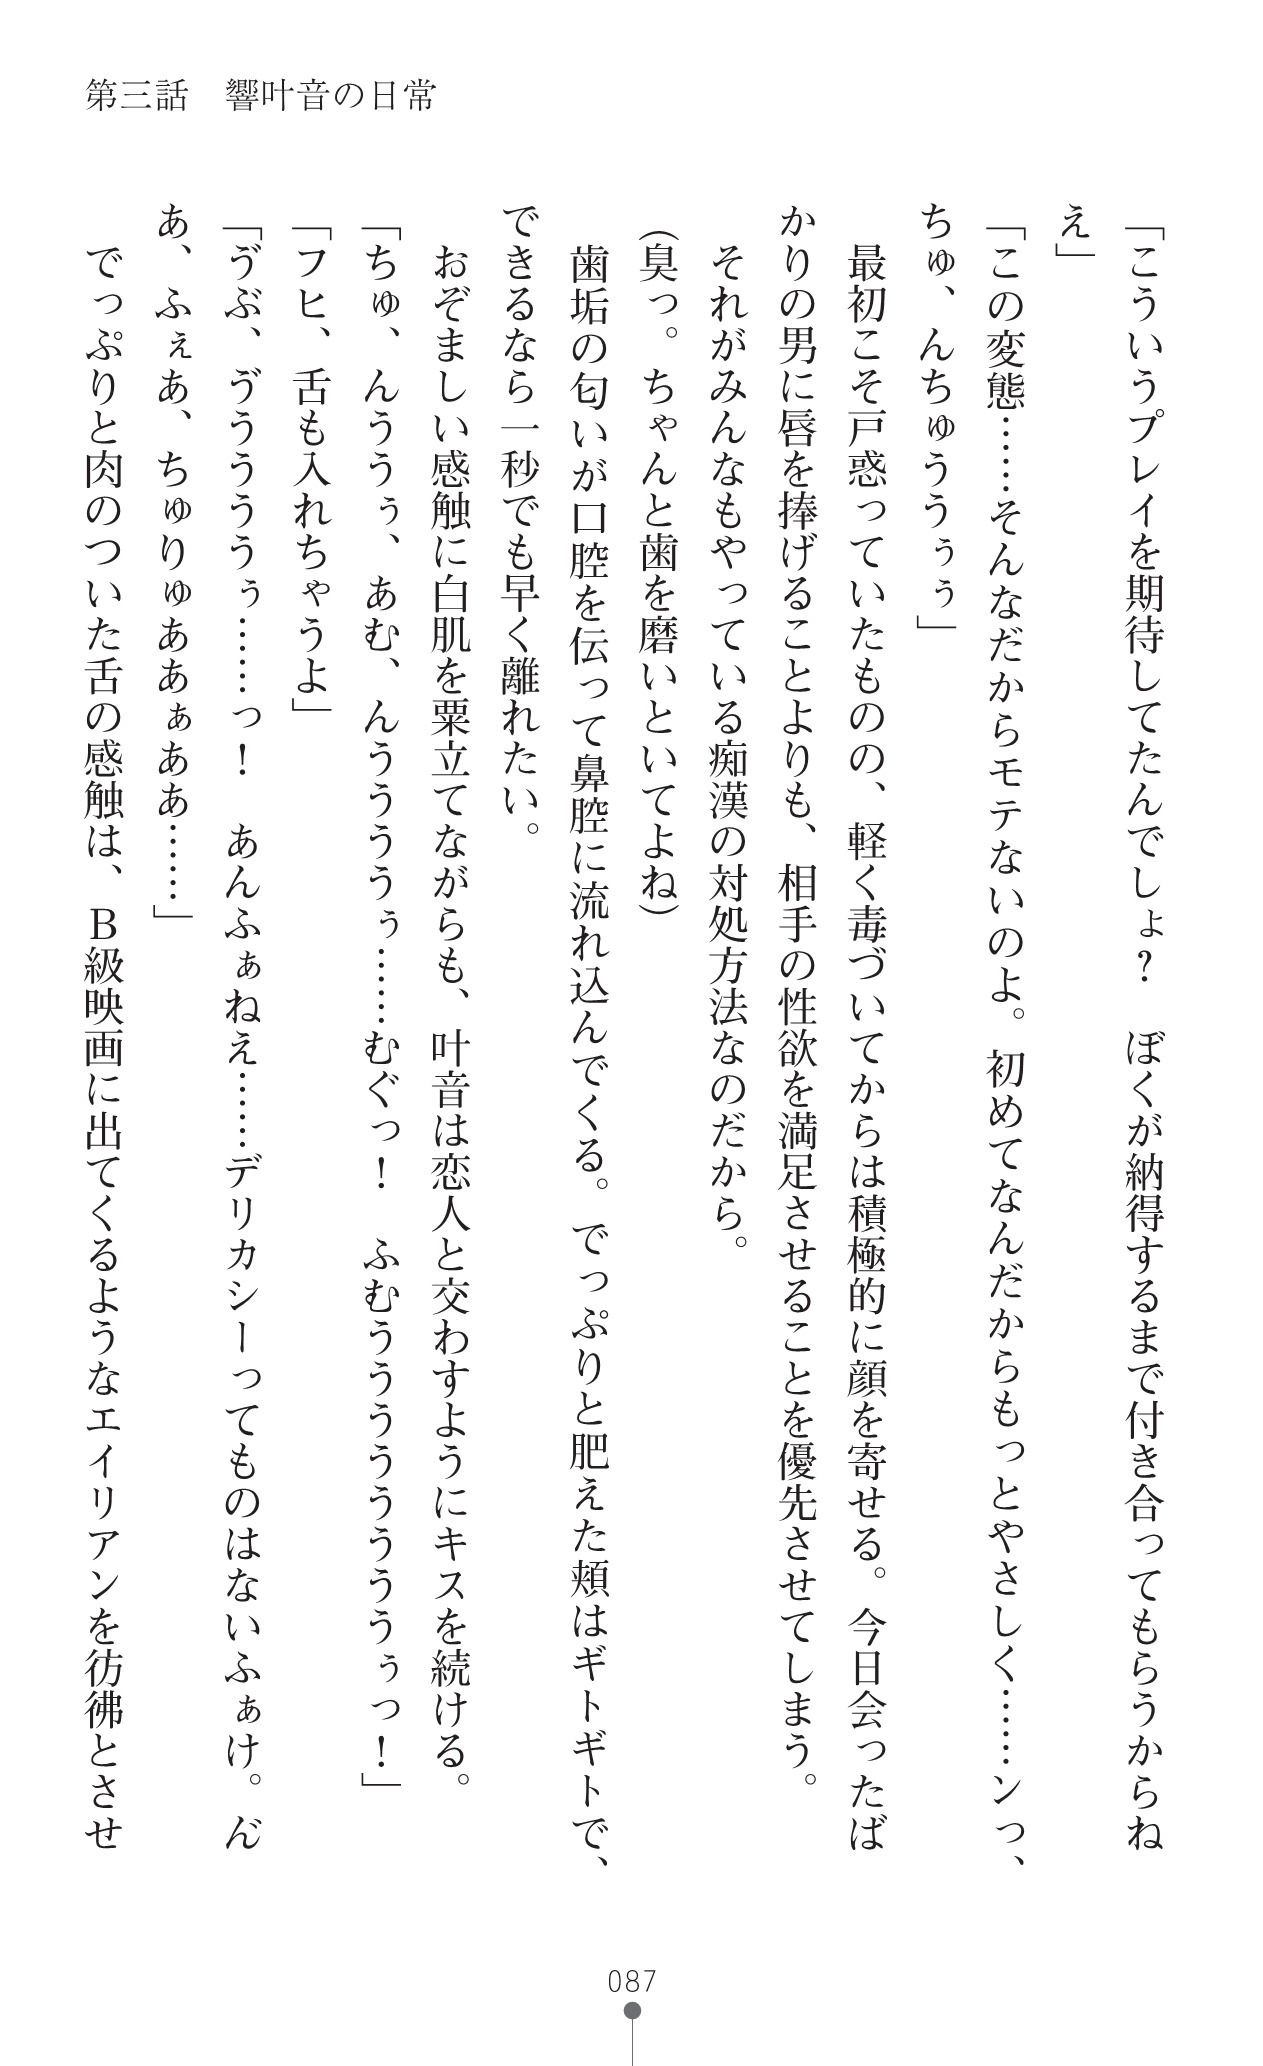 第三話　響叶音の日常
「こういうプレイを期待してたんでしょ？　ぼくが納得するまで付き合ってもらうからね
え」
「この変態……そんなだからモテないのよ。初めてなんだからもっとやさしく……ンっ、
ちゅ、んちゅううぅぅ」
　最初こそ戸惑っていたものの、軽く毒づいてからは積極的に顔を寄せる。今日会ったば
かりの男に唇を捧げることよりも、相手の性欲を満足させることを優先させてしまう。
　それがみんなもやっている痴漢の対処方法なのだから。
（臭っ。ちゃんと歯を磨いといてよね）
　歯垢の匂いが口腔を伝って鼻腔に流れ込んでくる。でっぷりと肥えた頬はギトギトで、
できるなら一秒でも早く離れたい。
　おぞましい感触に白肌を粟立てながらも、叶音は恋人と交わすようにキスを続ける。
「ちゅ、んううぅ、あむ、んうううぅ……むぐっ！　ふむうううううううぅっ！」
「フヒ、舌も入れちゃうよ」
「ゔぶ、ゔうううぅ……っ！　あんふぁねえ……デリカシーってものはないふぁけ。ん゙
あ、ふぇあ、ちゅりゅああぁああ……」
　でっぷりと肉のついた舌の感触は、Ｂ級映画に出てくるようなエイリアンを彷彿とさせ
087